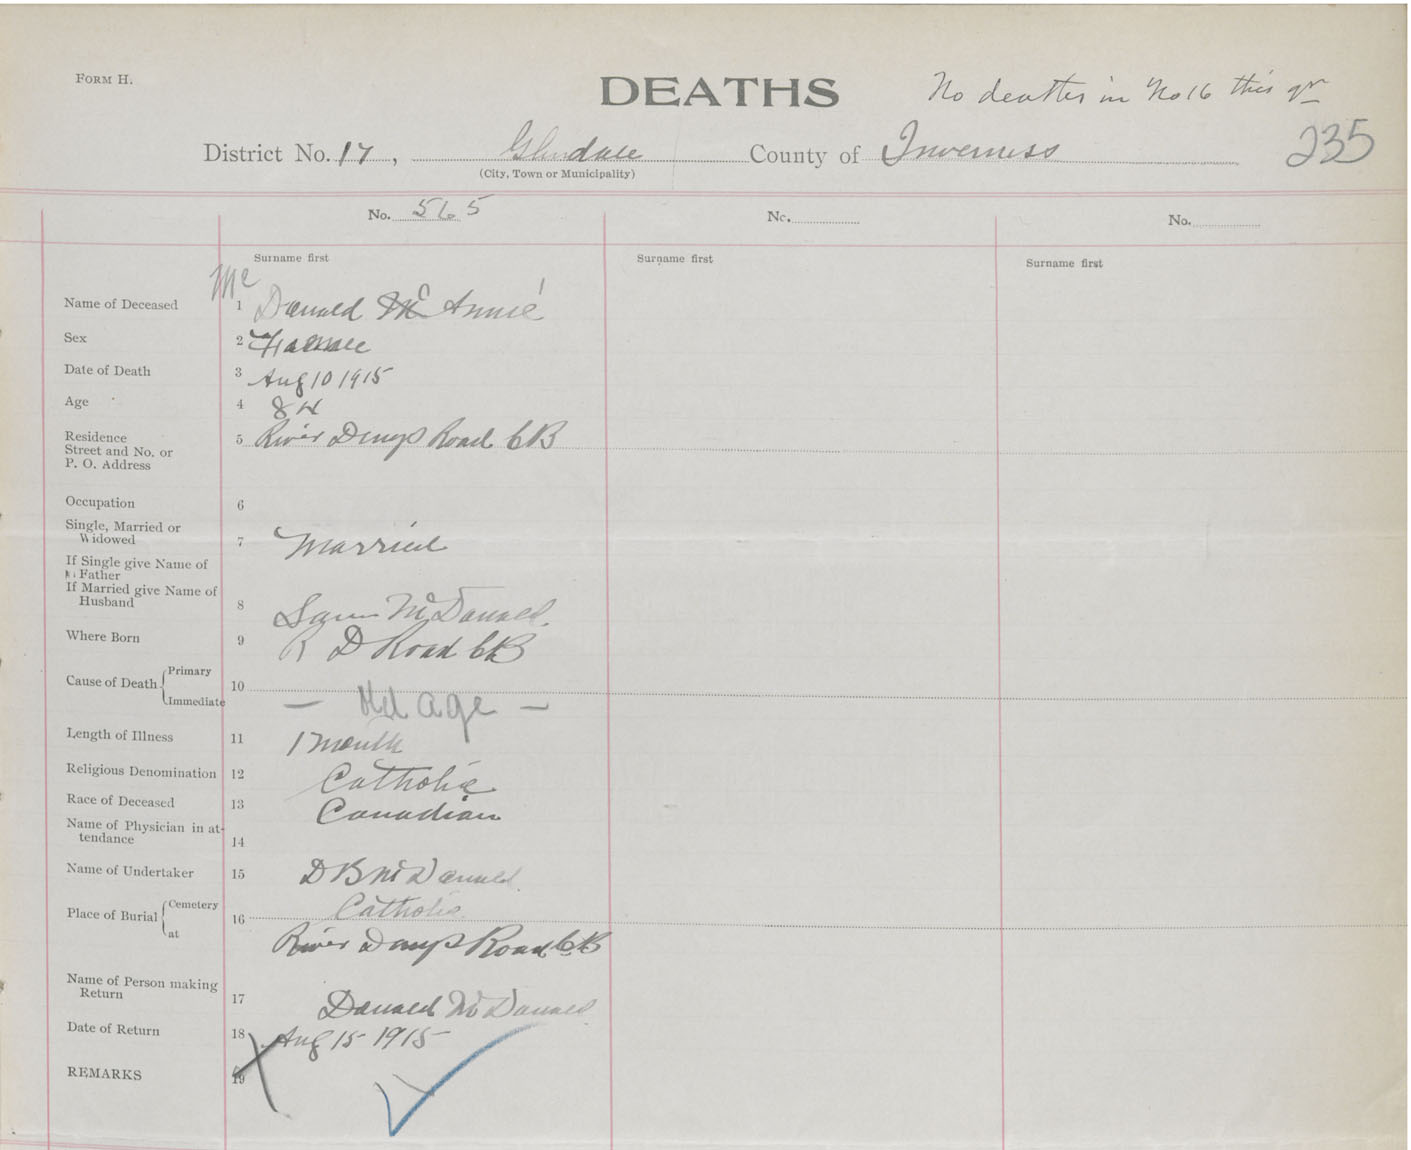 FORM H.
DEATHS
No deaths in No 16 this qr
District No. 17, Glendale County of Inverness 235
(City, Town or Municipality)
No. 565 No. No.
Surname first Surname first Surname first
Mc
Name of Deceased 1 Donald Mc Annie
Sex 2 Female
Date of Death 3 Aug 10 1915
Age 4 84
Residence
Street and No. or
P. O. Address 5 River Denys Road CB
Occupation 6
Single, Married or
Widowed 7 Married
If Single give Name of
Father
If Married give Name of
Husband 8 McDonald
Where Born 9 R D Road CB
Cause of Death Primary
Immediate 10 — Old age —
Length of Illness 11 1 month
Religious Denomination 12 Catholic
Race of Deceased 13 Canadian
Name of Physician in at-
tendance 14
Name of Undertaker 15 D B McDonald
Place of Burial Cemetery
at 16 Catholic
River Denys Road CB
Name of Person making
Return 17 Donald McDonald
Date of Return 18 Aug 15 1915
REMARKS 19